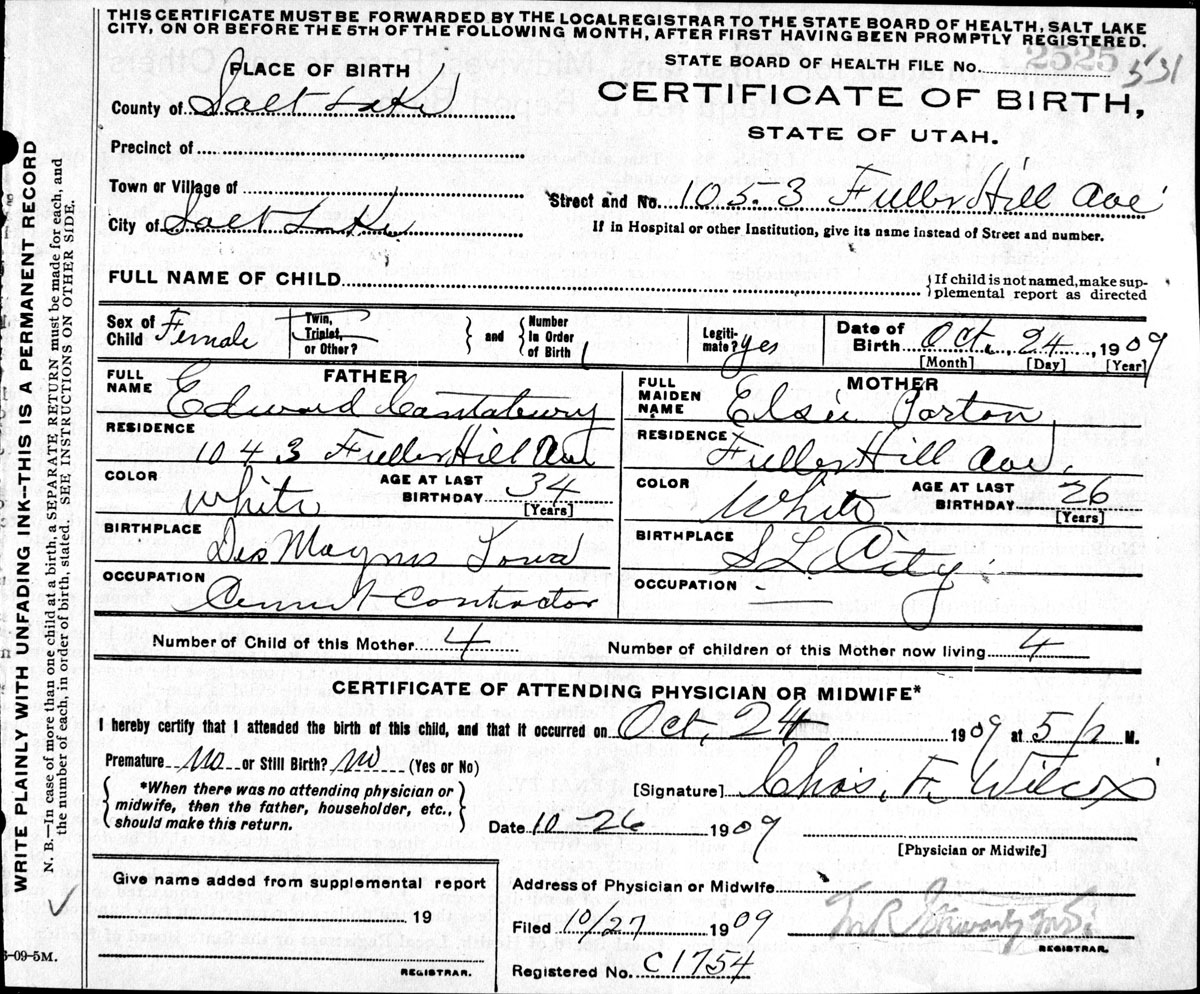 THIS CERTIFICATE MUST BE FORWARDED BY THE LOCAL REGISTRAR TO THE STATE BOARD OF HEALTH, SALT LAKE
CITY, ON OR BEFORE THE 5TH OF THE FOLLOWING MONTH, AFTER FIRST HAVING BEEN PROMPTLY REGISTERED.
PLACE OF BIRTH
STATE BOARD OF HEALTH FILE NO. 2525 531
County of Salt Lake
CERTIFICATE OF BIRTH,
STATE OF UTAH.
Precinct of
Town or Village of
Street and No. 1053 Fuller Hill Ave
City of Salt Lake
If in Hospital or other Institution, give its name instead of Street and number.
FULL NAME OF CHILD
If child is not named, make sup-
plemental report as directed
Sex of Child Female
Twin, Triplet, or Other?
and
Number in Order of Birth 1
Legiti-mate? yes
Date of Birth Oct. 24, 1909
[Month] [Day] [Year]
FATHER
FULL NAME Edward
MOTHER
FULL MAIDEN NAME Elsie
RESIDENCE 1043 Fuller Hill Ave
RESIDENCE Fuller Hill Ave.
COLOR White
AGE AT LAST BIRTHDAY 34
[Years]
COLOR White
AGE AT LAST BIRTHDAY 26
[Years]
BIRTHPLACE Des Moynes Iowa
BIRTHPLACE S L City
OCCUPATION Cement Contractor
OCCUPATION
Number of Child of this Mother 4
Number of children of this Mother now living 4
CERTIFICATE OF ATTENDING PHYSICIAN OR MIDWIFE*
I hereby certify that I attended the birth of this child, and that it occurred on Oct, 24 1909 at 5 P M.
Premature No or Still Birth? No (Yes or No)
*When there was no attending physician or
midwife, then the father, householder, etc.,
should make this return.
[Signature] Chas. F. Wilcox
Date 10-26 1909
[Physician or Midwife]
Give name added from supplemental report
19
REGISTRAR.
Address of Physician or Midwife
Filed 10/27 1909
REGISTRAR.
Registered No. C1754
WRITE PLAINLY WITH UNFADING INK--THIS IS A PERMANENT RECORD
N. B.—In case of more than one child at a birth, a SEPARATE RETURN must be made for each, and
the number of each, in order of birth, stated. SEE INSTRUCTIONS ON OTHER SIDE.
-09-5M.